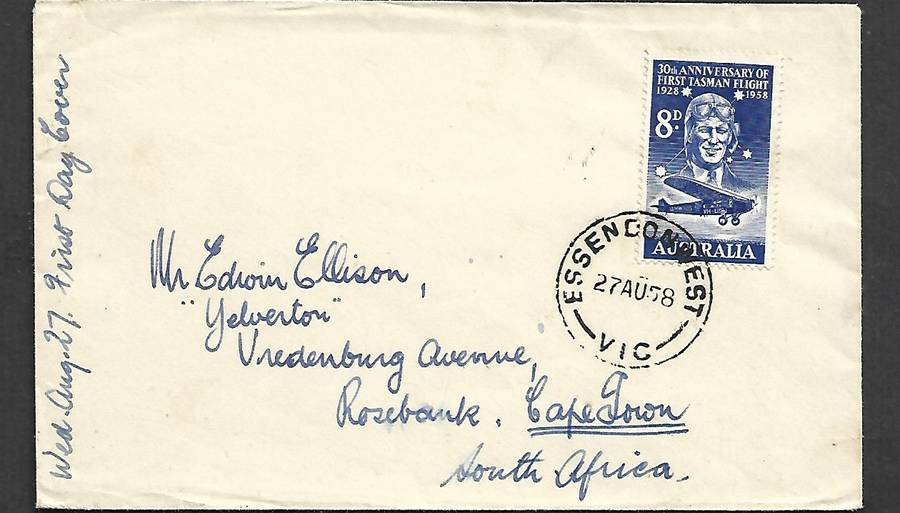 Wed. Aug. 27. First Day Cover
30th ANNIVERSARY OF
FIRST TASMAN FLIGHT
1928 1958
8D.
AUSTRALIA
ESSENDON WEST
27AU58
VIC
Mr Edwin Ellison,
"Yelverton"
Vredenburg Avenue,
Rosebank. Cape Town
South Africa.